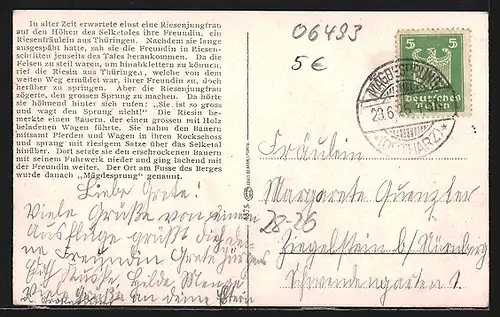 In alter Zeit erwartete einst eine Riesenjungfrau
auf den Höhen des Selketales ihre Freundin, ein
Riesenfräulein aus Thüringen. Nachdem sie lange
ausgespäht hatte, sah sie die Freundin in Riesen-
schritten jenseits des Tales herankommen. Da die
Felsen zu steil waren, um hinabklettern zu können,
rief die Riesin aus Thüringen, welche von dem
weiten Weg ermüdet war, ihrer Freundin zu, doch
herüber zu springen. Aber die Riesenjungfrau
zögerte, den grossen Sprung zu machen. Da hörte
sie höhnend hinter sich rufen: „Sie ist so gross
und wagt den Sprung nicht!" Die Riesin be-
merkte einen Bauern, der einen grossen mit Holz
beladenen Wagen führte. Sie nahm den Bauern
mitsamt Pferden und Wagen in ihren Rockschoss
und sprang mit riesigem Satze über das Selketal
hinüber. Dort setzte sie den erschrockenen Bauern
mit seinem Fuhrwerk nieder und ging lachend mit
der Freundin weiter. Der Ort am Fusse des Berges
wurde danach „Mägdesprung" genannt.
Liebe Grete!
Viele Grüße von einem
Ausfluge grüßt dich dei-
ne Freundin Grete
Hilde
Viele Grüße an deine Eltern
06493
5€
5 5
Deutsches
Reich
MÄGDESPRUNG
(OSTHARZ)
Fräulein
Margarete Guenzler
28-26
Ziegelstein b/Nürnberg
Schwendengarten 1